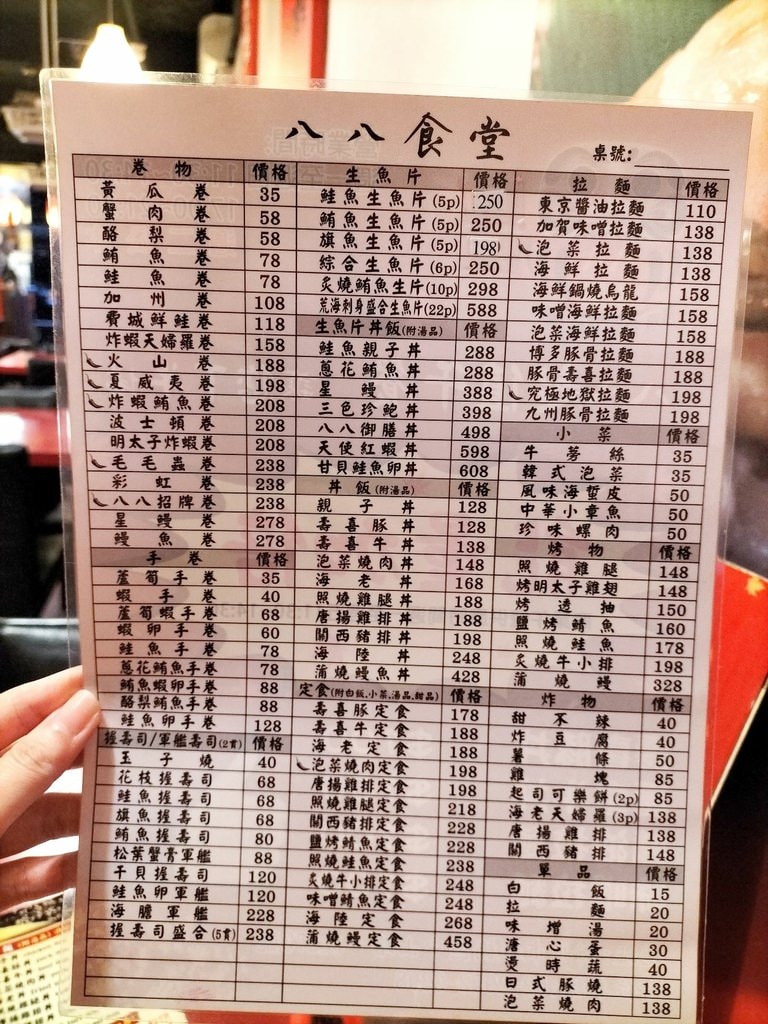 八八食堂
桌號:
卷物 價格
黃瓜卷 35
蟹肉卷 58
酪梨卷 58
鮪魚卷 78
鮭魚卷 78
加州卷 108
費城鮮鮭卷 118
炸蝦天婦羅卷 158
火山卷 188
夏威夷卷 198
炸蝦鮪魚卷 208
波士頓卷 208
明太子炸蝦卷 208
毛毛蟲卷 238
彩虹卷 238
八八招牌卷 238
星鰻卷 278
鰻魚卷 278
手卷 價格
蘆筍手卷 35
蝦手卷 40
蘆筍蝦手卷 68
蝦卵手卷 60
鮭魚手卷 78
蔥花鮪魚手卷 78
鮪魚蝦卵手卷 88
酪梨鮪魚手卷 88
鮭魚卵手卷 128
握壽司/軍艦壽司(2貫) 價格
玉子燒 40
花枝握壽司 68
鮭魚握壽司 68
旗魚握壽司 68
鮪魚握壽司 80
松葉蟹膏軍艦 88
干貝握壽司 120
鮭魚卵軍艦 120
海膽軍艦 228
握壽司盛合(5貫) 238
生魚片 價格
鮭魚生魚片(5p) 250
鮪魚生魚片(5p) 250
旗魚生魚片(5p) 198
綜合生魚片(6p) 250
炙燒鮪魚生片(10p) 298
荒海刺身盛合生魚片(22p) 588
生魚片丼飯(附湯品) 價格
鮭魚親子丼 288
蔥花鮪魚丼 288
星鰻丼 388
三色珍鮑丼 398
八八御膳丼 498
天使紅蝦丼 598
甘貝鮭魚卵丼 608
丼飯(附湯品) 價格
親子丼 128
壽喜豚丼 128
壽喜牛丼 138
泡菜燒肉丼 148
海老丼 168
照燒雞腿丼 188
唐揚雞排丼 188
關西豬排丼 198
海陸丼 248
蒲燒鰻魚丼 428
定食(附白飯.小菜.湯品.甜品) 價格
壽喜豚定食 178
壽喜牛定食 188
海老定食 188
泡菜燒肉定食 198
唐揚雞排定食 198
照燒雞腿定食 218
關西豬排定食 228
鹽烤鯖魚定食 228
照燒鮭魚定食 238
炙燒牛小排定食 248
味噌鯖魚定食 248
海陸定食 268
蒲燒鰻定食 458
拉麵 價格
東京醬油拉麵 110
加賀味噌拉麵 138
泡菜拉麵 138
海鮮拉麵 138
海鮮鍋燒烏龍 158
味噌海鮮拉麵 158
泡菜海鮮拉麵 158
博多豚骨拉麵 188
豚骨壽喜拉麵 188
究極地獄拉麵 198
九州豚骨拉麵 198
小菜 價格
牛蒡絲 35
韓式泡菜 35
風味海蜇皮 50
中華小章魚 50
珍味螺肉 50
烤物 價格
照燒雞腿 148
烤明太子雞翅 148
烤透抽 150
鹽烤鯖魚 160
照燒鮭魚 178
炙燒牛小排 198
蒲燒鰻 328
炸物 價格
甜不辣 40
炸豆腐 40
薯條 50
雞塊 85
起司可樂餅(2p) 85
海老天婦羅(3p) 138
唐揚雞排 138
關西豬排 148
單品 價格
白飯 15
拉麵 20
味增湯 20
溏心蛋 30
燙時蔬 40
日式豚燒 138
泡菜燒肉 138